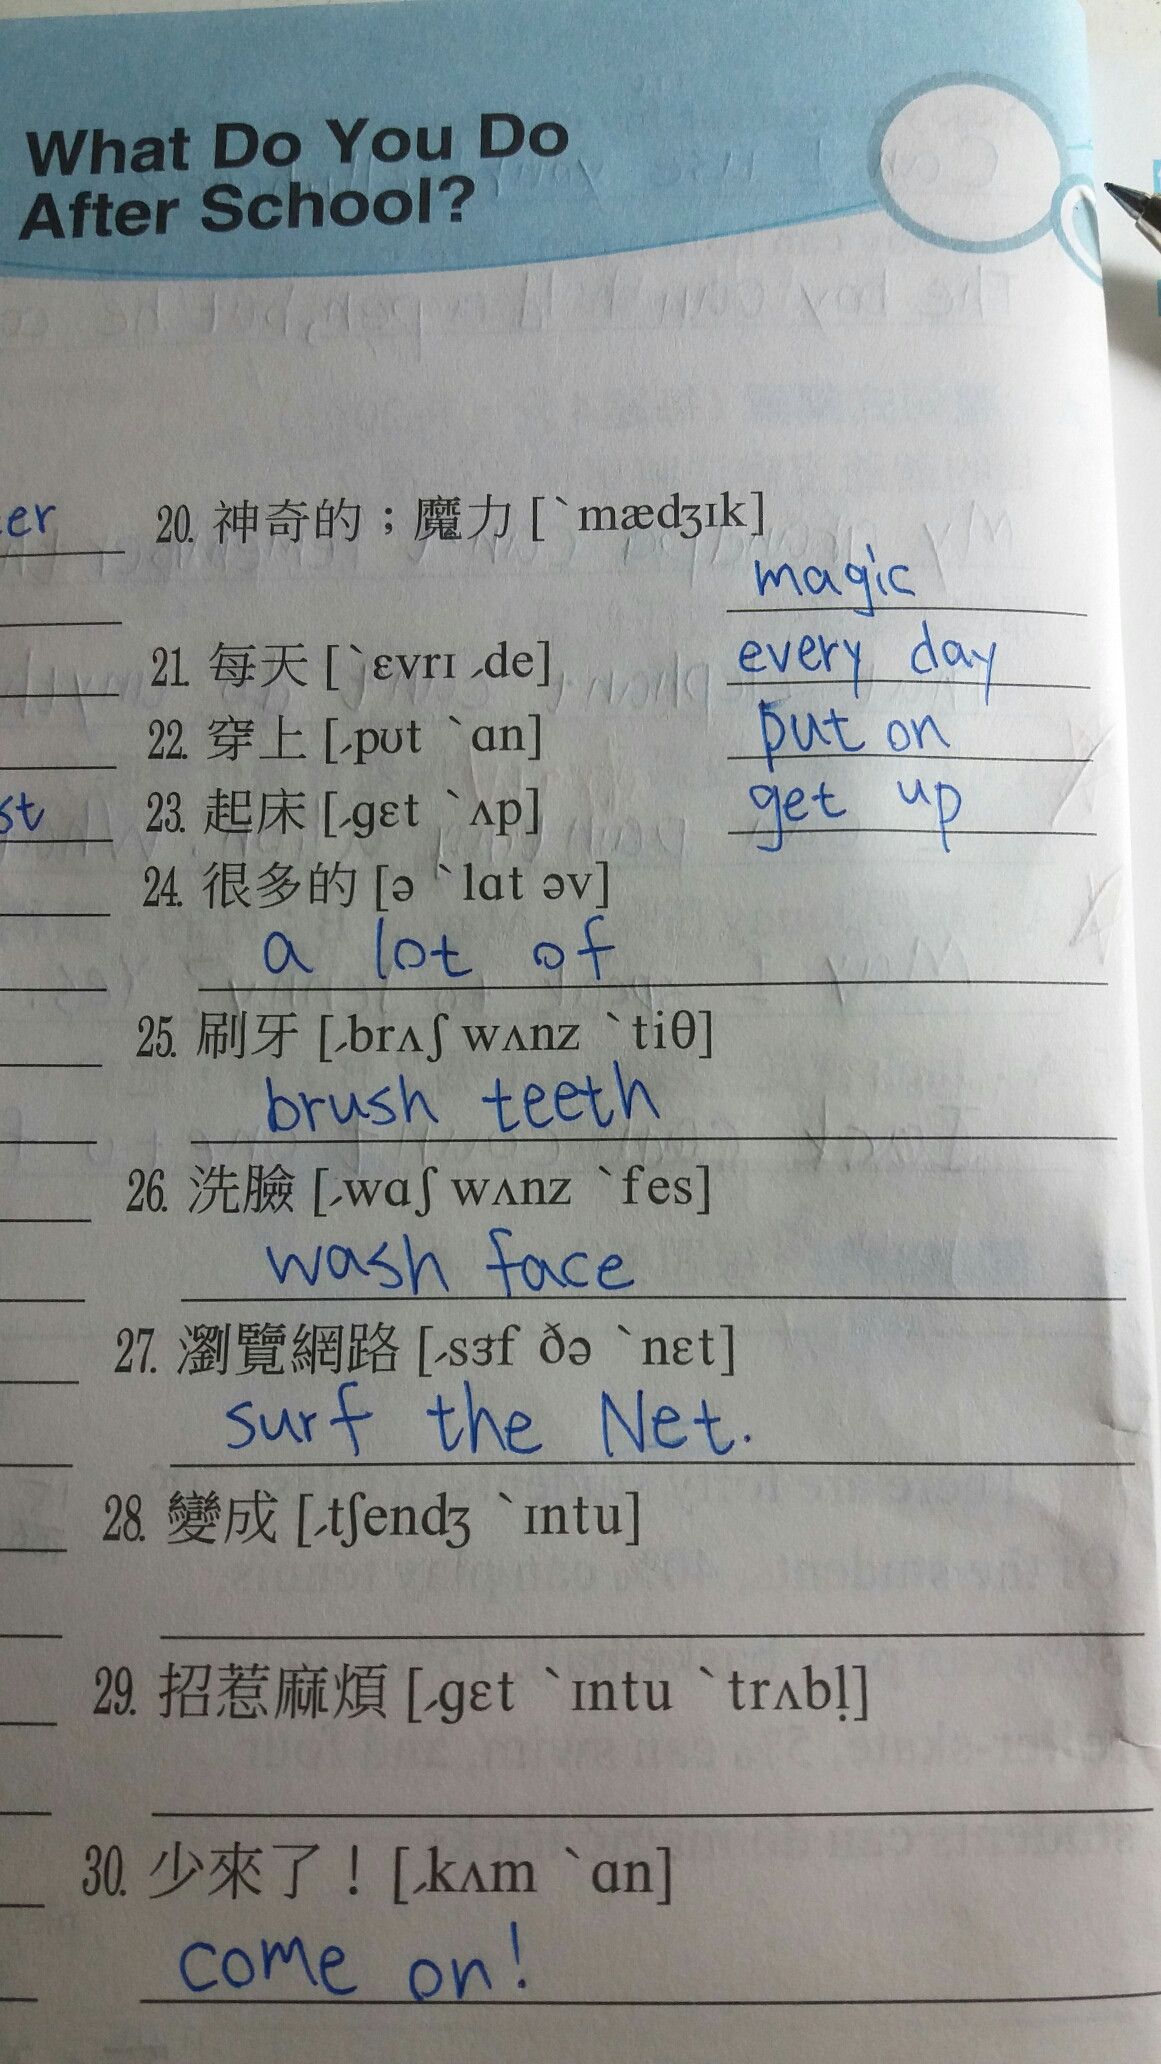 What Do You Do
After School?
er
20. 神奇的；魔力 [ˋmædʒɪk]
magic
21. 每天 [ˋɛvrɪ ˏde]
every day
22. 穿上 [ˏpʊt ˋɑn]
put on
st
23. 起床 [ˏgɛt ˋʌp]
get up
24. 很多的 [ə ˋlɑt əv]
a lot of
25. 刷牙 [ˏbrʌʃ wʌnz ˋtiθ]
brush teeth
26. 洗臉 [ˏwɑʃ wʌnz ˋfes]
wash face
27. 瀏覽網路 [ˏsɝf ðə ˋnɛt]
surf the Net.
28. 變成 [ˏtʃendʒ ˋɪntu]
29. 招惹麻煩 [ˏgɛt ˋɪntu ˋtrʌbl̩]
30. 少來了！ [ˏkʌm ˋɑn]
come on!